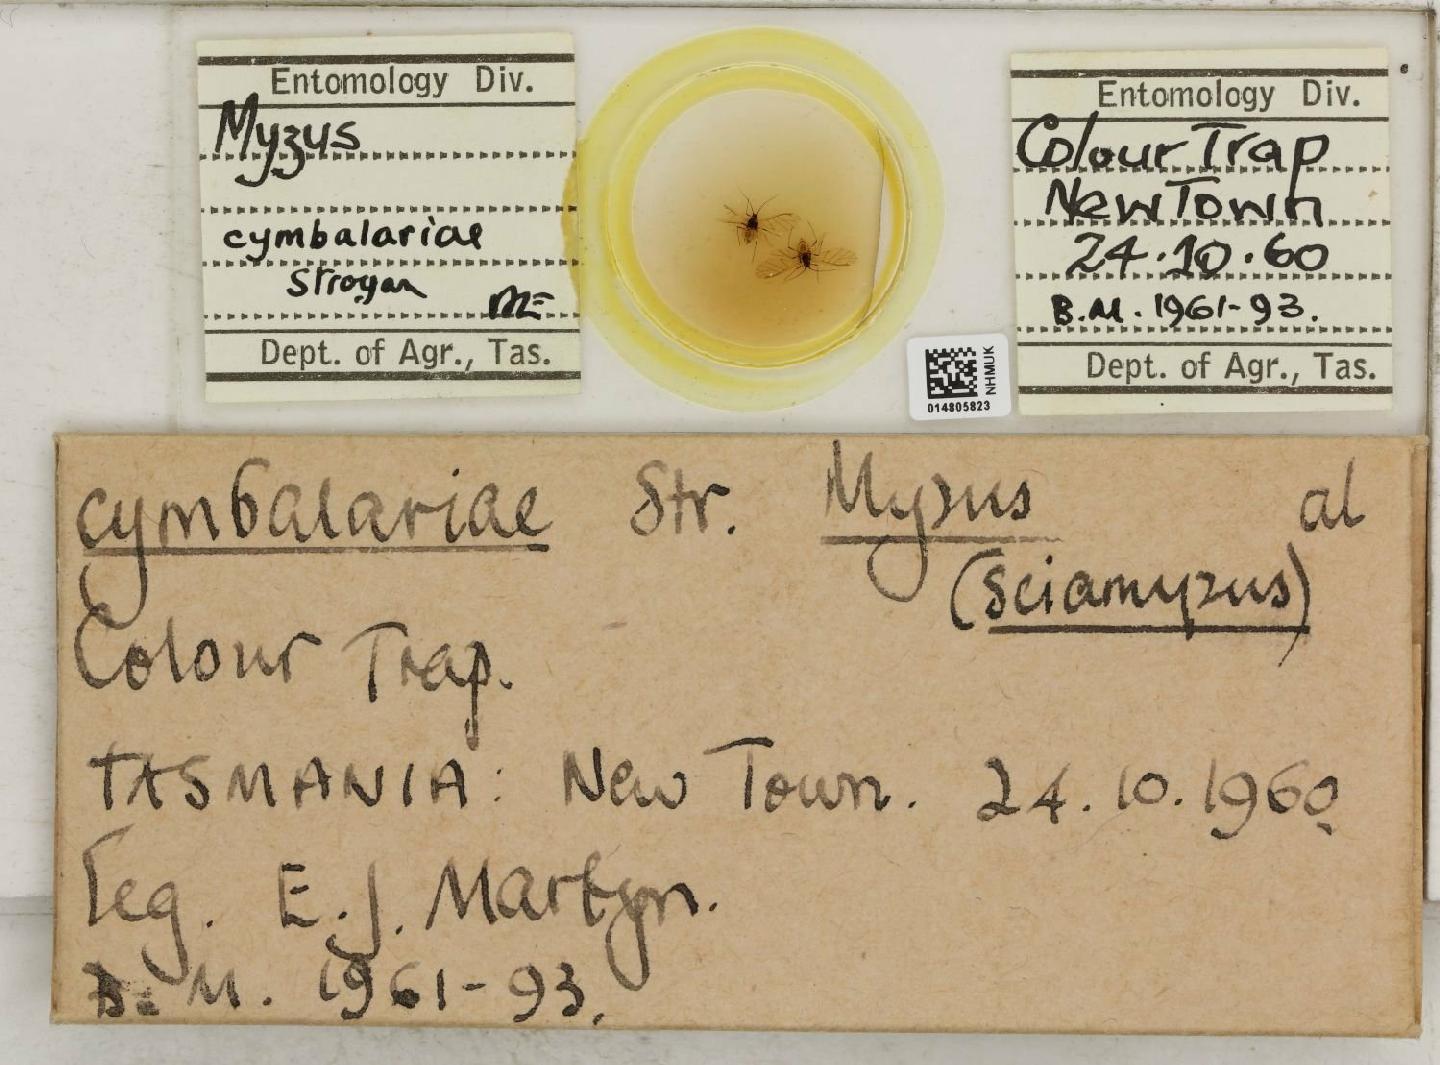 Entomology Div.
Myzus
cymbalariae
Stroyan
Dept. of Agr., Tas.
Entomology Div.
Colour Trap
New Town
24.10.60
B.M. 1961-93.
Dept. of Agr., Tas.
NHMUK
014805823
cymbalariae Str. Myzus al
(Sciamyzus)
Colour Trap.
TASMANIA: New Town. 24.10.1960.
leg. E.J. Martyn.
B.M. 1961-93.